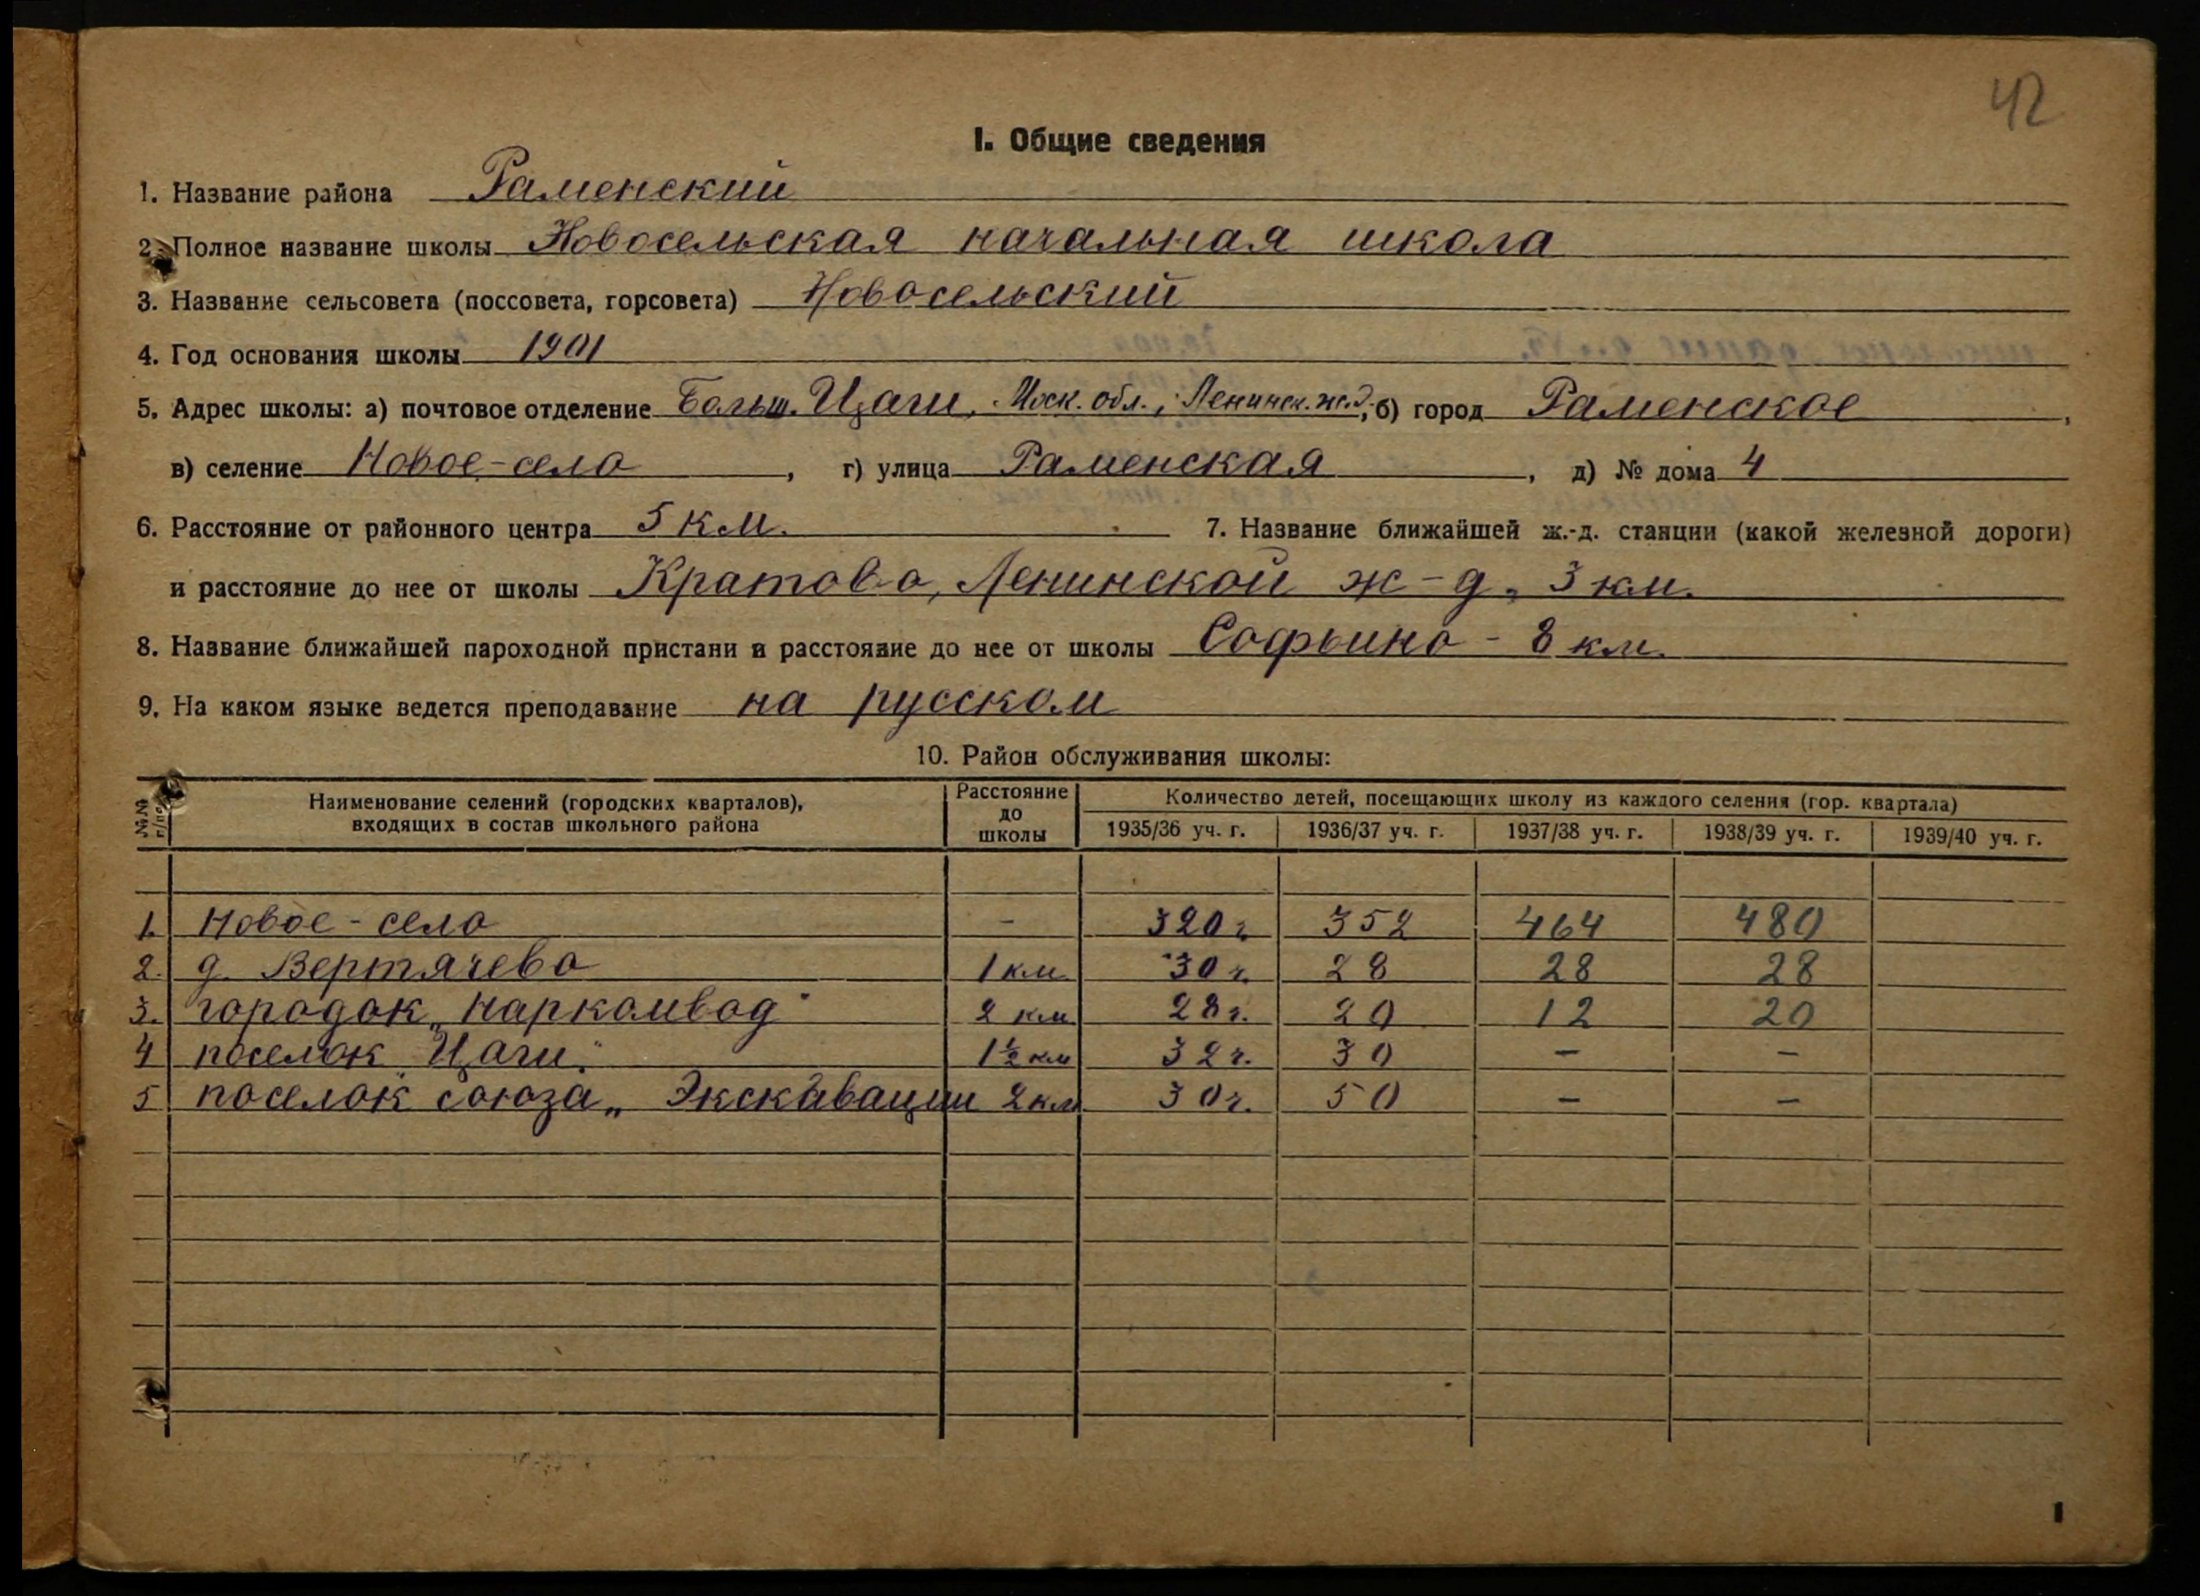 42
I. Общие сведения
1. Название района Раменский
2. Полное название школы Новосельская начальная школа
3. Название сельсовета (поссовета, горсовета) Новосельский
4. Год основания школы 1901
5. Адрес школы: а) почтовое отделение Больш. Цаги, Моск. обл., Ленинск. ж.д., б) город Раменское,
в) селение Новое-село, г) улица Раменская, д) № дома 4
6. Расстояние от районного центра 5 км. 7. Название ближайшей ж.-д. станции (какой железной дороги)
и расстояние до нее от школы Кратово, Ленинской ж-д, 3 км.
8. Название ближайшей пароходной пристани и расстояние до нее от школы Софьино - 8 км.
9. На каком языке ведется преподавание на русском
10. Район обслуживания школы:
№№ п/п Наименование селений (городских кварталов), входящих в состав школьного района Расстояние до школы Количество детей, посещающих школу из каждого селения (гор. квартала)
1935/36 уч. г. 1936/37 уч. г. 1937/38 уч. г. 1938/39 уч. г. 1939/40 уч. г.
1. Новое-село - 320 ч. 352 464 480
2. д. Вертячево 1 км 30 ч. 28 28 28
3. городок „Наркомвод" 2 км 28 ч. 20 12 20
4 поселок „Цаги" 1½ км 32 ч. 30 - -
5 поселок союза „Экскавации 2 км 30 ч. 50 - -
1